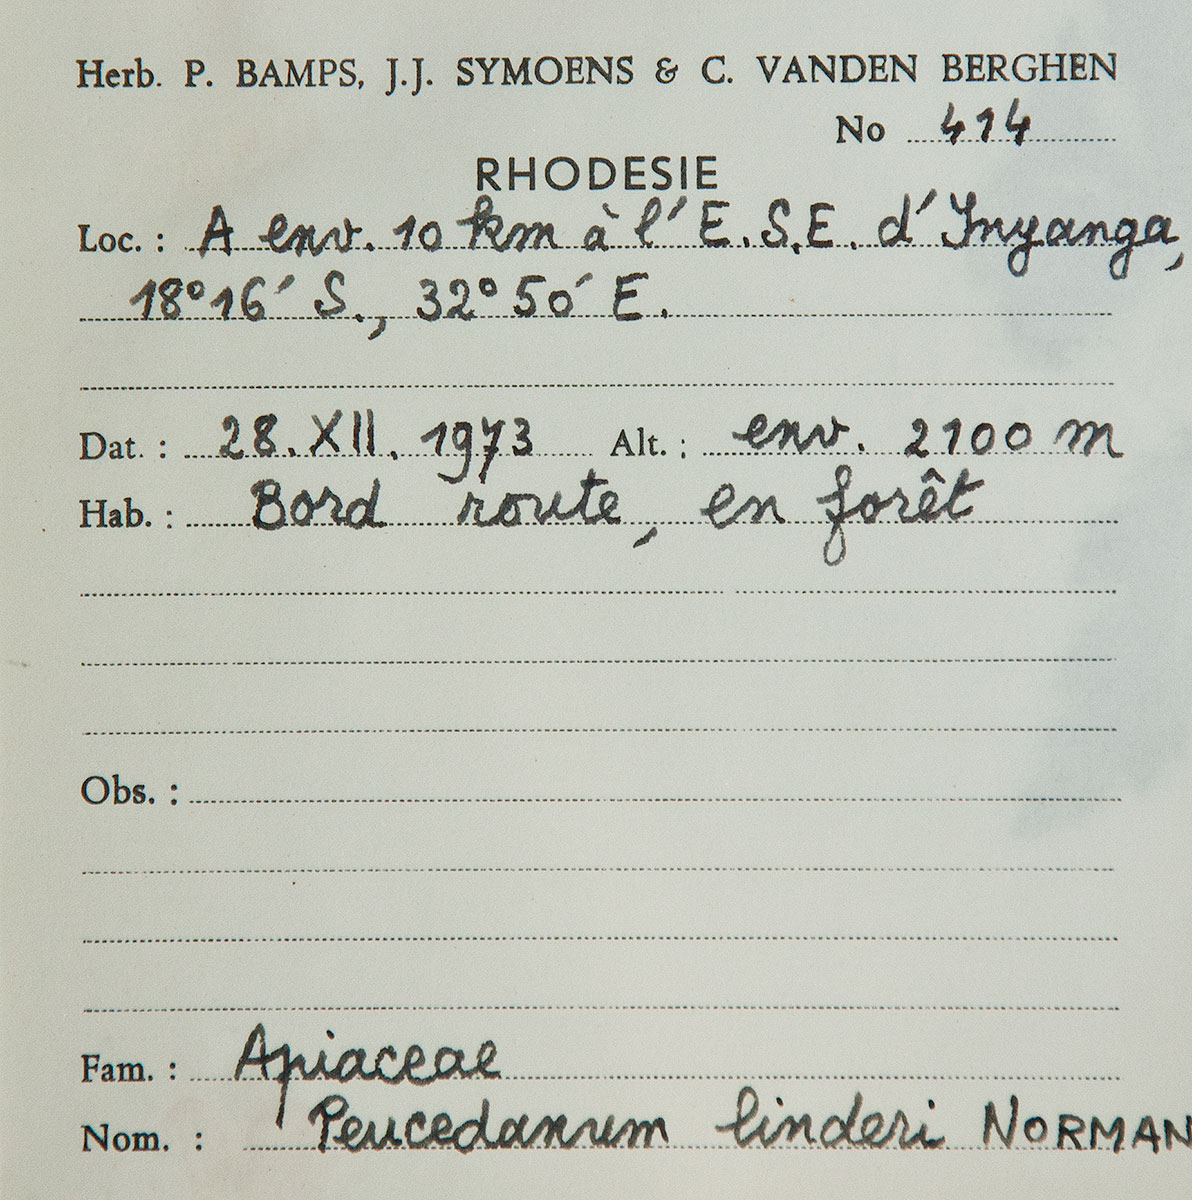 Herb. P. BAMPS, J.J. SYMOENS & C. VANDEN BERGHEN
No 414
RHODESIE
Loc. : A env. 10 km à l'E.S.E. d'Inyanga,
18°16' S., 32°50' E.
Dat. : 28.XII.1973 Alt. : env. 2100 m
Hab. : Bord route, en forêt
Obs. :
Fam. : Apiaceae
Nom. : Peucedanum linderi NORMAN